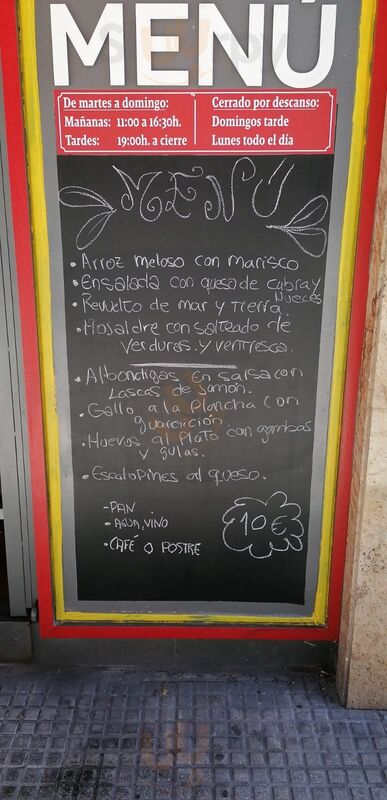 MENÚ
De martes a domingo:
Mañanas: 11:00 a 16:30h.
Tardes: 19:00h. a cierre
Cerrado por descanso:
Domingos tarde
Lunes todo el día
MENU
• Arroz meloso con marisco
• Ensalada con queso de cabra y
Nueces
• Revuelto de mar y tierra.
• Hojaldre con salteado de
verduras. y ventresca.
• Albondigas en salsa con
Lascas de jamon.
• Gallo a la plancha con
guarnición
• Huevos al plato con gambas
y gulas.
• Escalopines al queso.
- PAN
- AGUA, VINO
- CAFÉ O POSTRE
10€